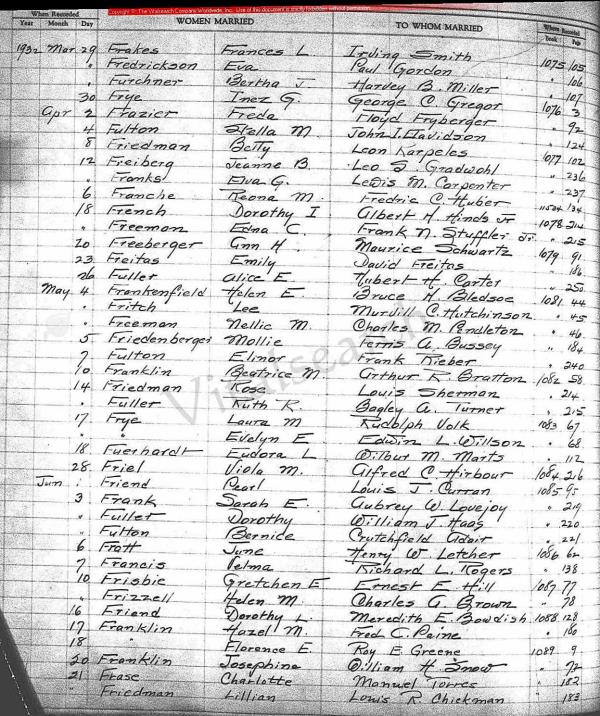 Copyright © The Vitalsearch Company Worldwide, Inc. Use of this document is strictly forbidden without permission.
When Recorded WOMEN MARRIED TO WHOM MARRIED Where Recorded
Year Month Day Book Page
1932 Mar 29 Frakes Frances L Irving Smith 1075 105
" Fredrickson Eva Paul Gordon " 106
" Furchner Bertha J Harvey B. Miller " 107
30 Frye Inez G. George C. Gregor 1076 3
Apr 2 Frazier Freda Floyd Fryberger " 92
4 Fulton Stella M. John I. Davidson " 124
8 Friedman Betty Leon Karpeles 1077 102
12 Freiberg Jeanne B. Leo S. Gradwohl " 236
" Franks Elva G. Lewis M. Carpenter " 237
6 Franche Reona M. Fredric C. Huber 11524 134
18 French Dorothy I Albert H. Hinds Jr 1078 214
" Freeman Edna C. Frank N. Stuffler Jr. " 215
20 Freeberger Ann H. Maurice Schwartz 1079 91
23 Freitas Emily David Freitas " 186
26 Fuller Alice E Hubert H. Carter " 250
May 4 Frankenfield Helen E. Bruce H. Bledsoe 1081 44
" Fritch Lee Murvill C. Hutchinson " 45
" Freeman Nellie M. Charles M. Pendleton " 46
5 Friedenberger Mollie Ferris A. Bussey " 184
7 Fulton Elinor Frank Rieber " 240
10 Franklin Beatrice M. Arthur R. Bratton 1082 58
14 Friedman Rose Louis Sherman " 214
" Fuller Ruth R. Bagley A. Turner " 215
17 Frye Laura M Rudolph Volk 1083 67
" " Evelyn E. Edwin L. Willson " 68
18 Fuerhardt Eudora L Wilbur M. Marts " 112
28 Friel Viola M. Alfred C. Hirbour 1084 216
Jun 1 Friend Pearl Louis J. Curran 1085 95
3 Frank Sarah E. Aubrey W. Lovejoy " 219
" Fuller Dorothy William J. Haas " 220
" Fulton Bernice Crutchfield Adair " 221
6 Fratt June Henry W. Letcher 1086 62
7 Francis Velma Richard L. Rogers " 138
10 Frisbie Gretchen E Ernest E. Hill 1087 77
" Frizzell Helen M. Charles G. Brown " 78
16 Friend Dorothy L. Meredith E. Bowdish 1088 128
17 Franklin Hazel M. Fred C. Paine " 180
18 " Florence E. Roy E. Greene 1089 9
20 Franklin Josephine William H. Snow " 72
21 Frase Charlotte Manuel Torres " 182
" Friedman Lillian Louis R. Chickman " 183
Vitalsearch